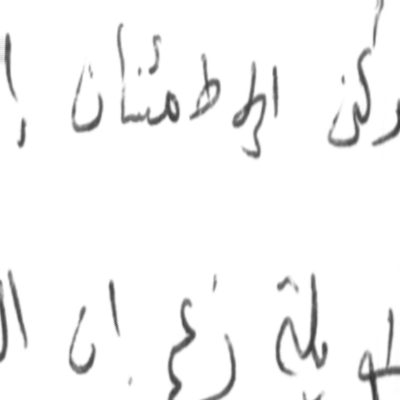 يمكن الاطمئنان إ
طويلة زعم ان ال